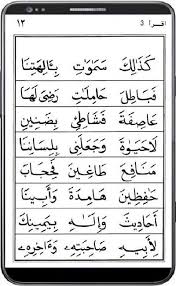 ١٢ اقرأ 3
كَذَٰلِكَ سَمَوٰتٍ بِـَٔالِهَتِنَا
فَبَاطِلٌ حَامِلَتُ رَضِيَ لَهَا
عَاصِفَةً فَشَاطِئِ بِضَنِيْنٍ
لَاحَيٰوةَ وَجَعَلَنِيْ بِلِسَانِنَا
مَنَافِعَ طَاغِيْنَ فَحِجَابٌ
حَٰفِظِيْنَ هَامِدَةً وَأَبِيْنَا
أَحَادِيْثَ وَإِلَٰهٍ بِيَمِيْنِكَ
لِأَبِيْهِ صَاحِبَتِهِ وَءَاخِرِهِ